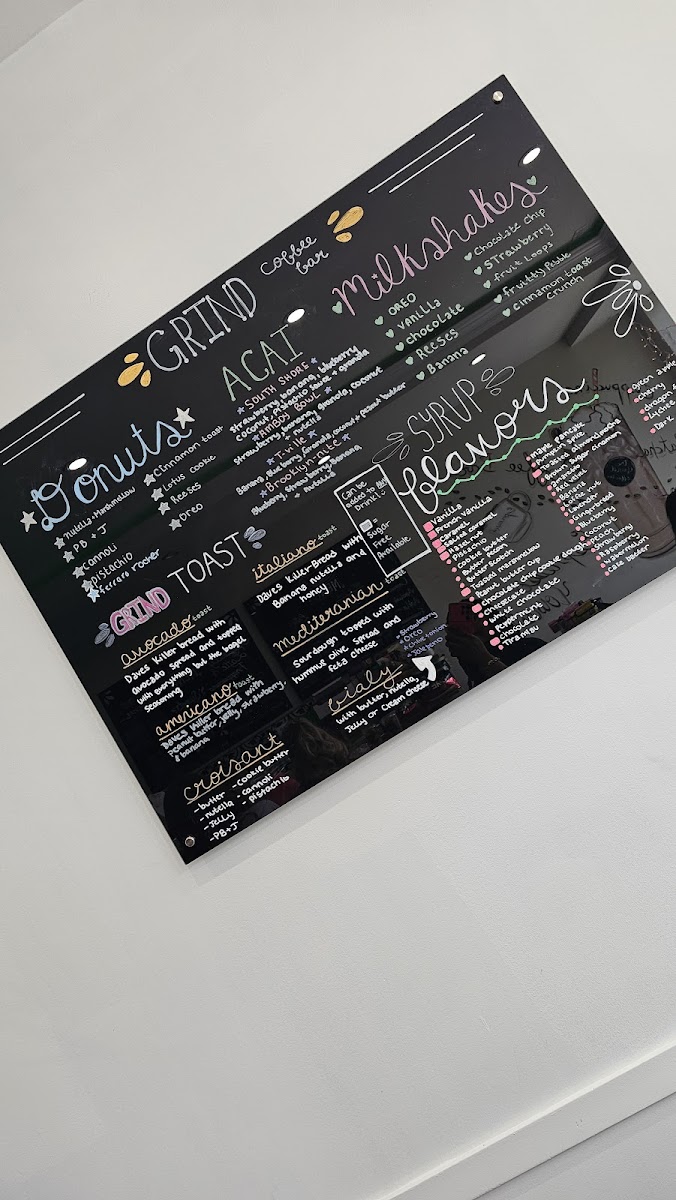 GRIND
coffee
bar
Donuts
Nutella + Marshmellow
PB + J
cannoli
pistachio
ferrero rosher
Cinnamon toast
lotus cookie
Reeses
Oreo
ACAI
SOUTH SHORE
Strawberry, banana, blueberry
Coconut, pistachio sauce + granola
PANBOY BOWL
Strawberry, banana, granola, coconut
+ nutella
Banana, blueberry, granola, coconut + peanut butter
Brooklyn-Bite
Blueberry, strawberry, banana
+ nutella
Milkshakes
OREO
vanilla
chocolate
REESES
Banana
Chocolate Chip
STRawberry
Fruit Loops
Fruitty Pebble
Cinnamon toast
crunch
SYRUP
flavors
Can be
added to any
Drink!
Sugar
Free
Available
Vanilla
French vanilla
Caramel
Salted caramel
Hazelnut
Pistachio
Cookie butter
Butter Scotch
Toasted marshmellow
Peanut butter cup
Chocolate chip cookie dough
Cheesecake
White chocolate
Peppermint
Chocolate
Tiramisu
Maple pancake
Pumpkin Spice
Brown Sugar cinnamon
Banana
Red velvet
Coconut
Lavender
Rose
Gingerbread
Blueberry
Pecan
Strawberry
Raspberry
Watermelon
Cake batter
Green apple
Cherry
GRIND TOAST
avocado toast
Daves Killer bread with
Avocado spread and topped
with everything but the bagel
seasoning
americano toast
Daves Killer bread with
Peanut butter, jelly, strawberry,
+ banana
croisant
- butter
- nutella
- Jelly
- PB+J
- cookie butter
- cannoli
- pistachio
italiano toast
Daves Killer Bread with
Banana nutella and
honey
mediteranian toast
Sourdough topped with
hummus olive spread and
feta cheese
bialy
with butter, nutella,
Jelly or Cream cheese
Strawberry
Oreo
Jalapeno